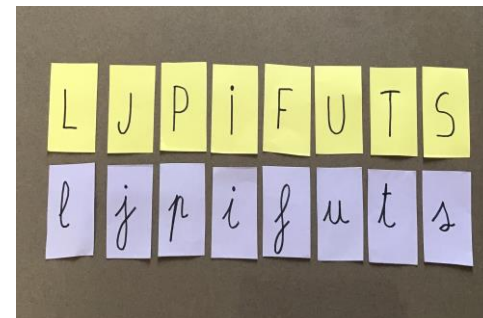 L J P i F U T S
l j p i f u t s